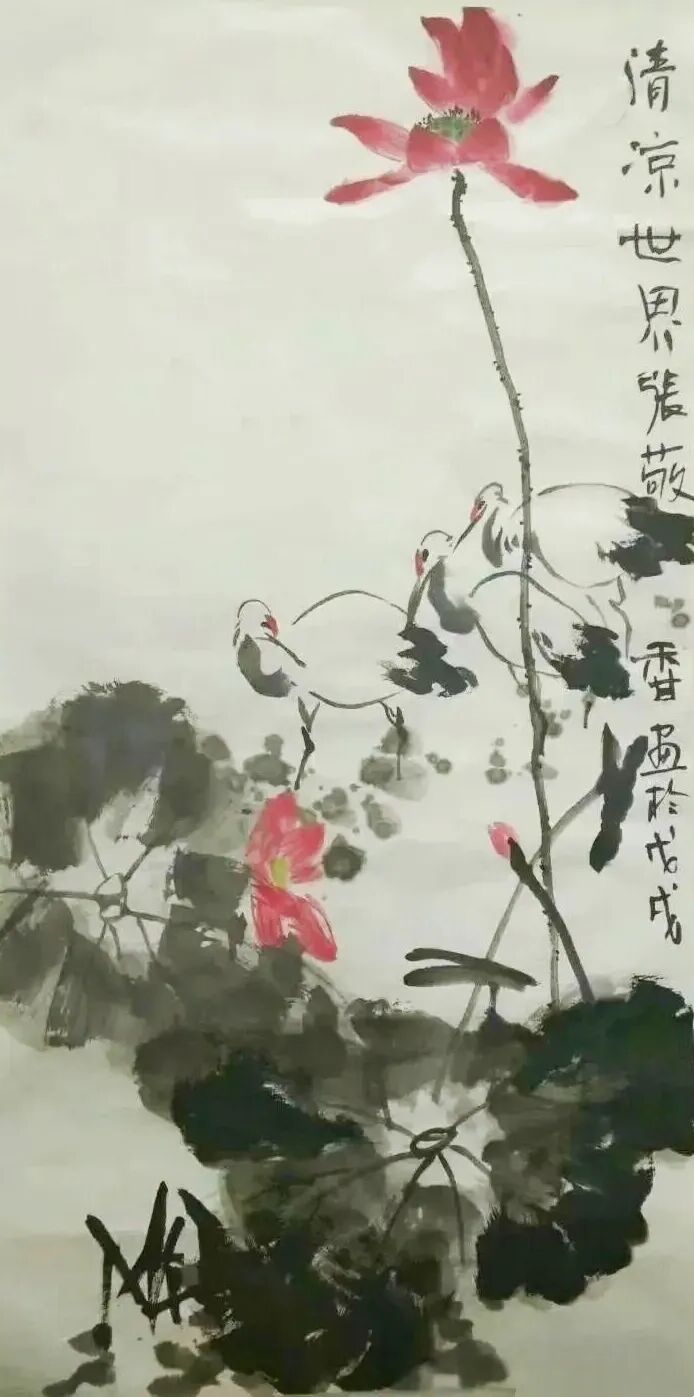 清凉世界張敬香画於戊戌